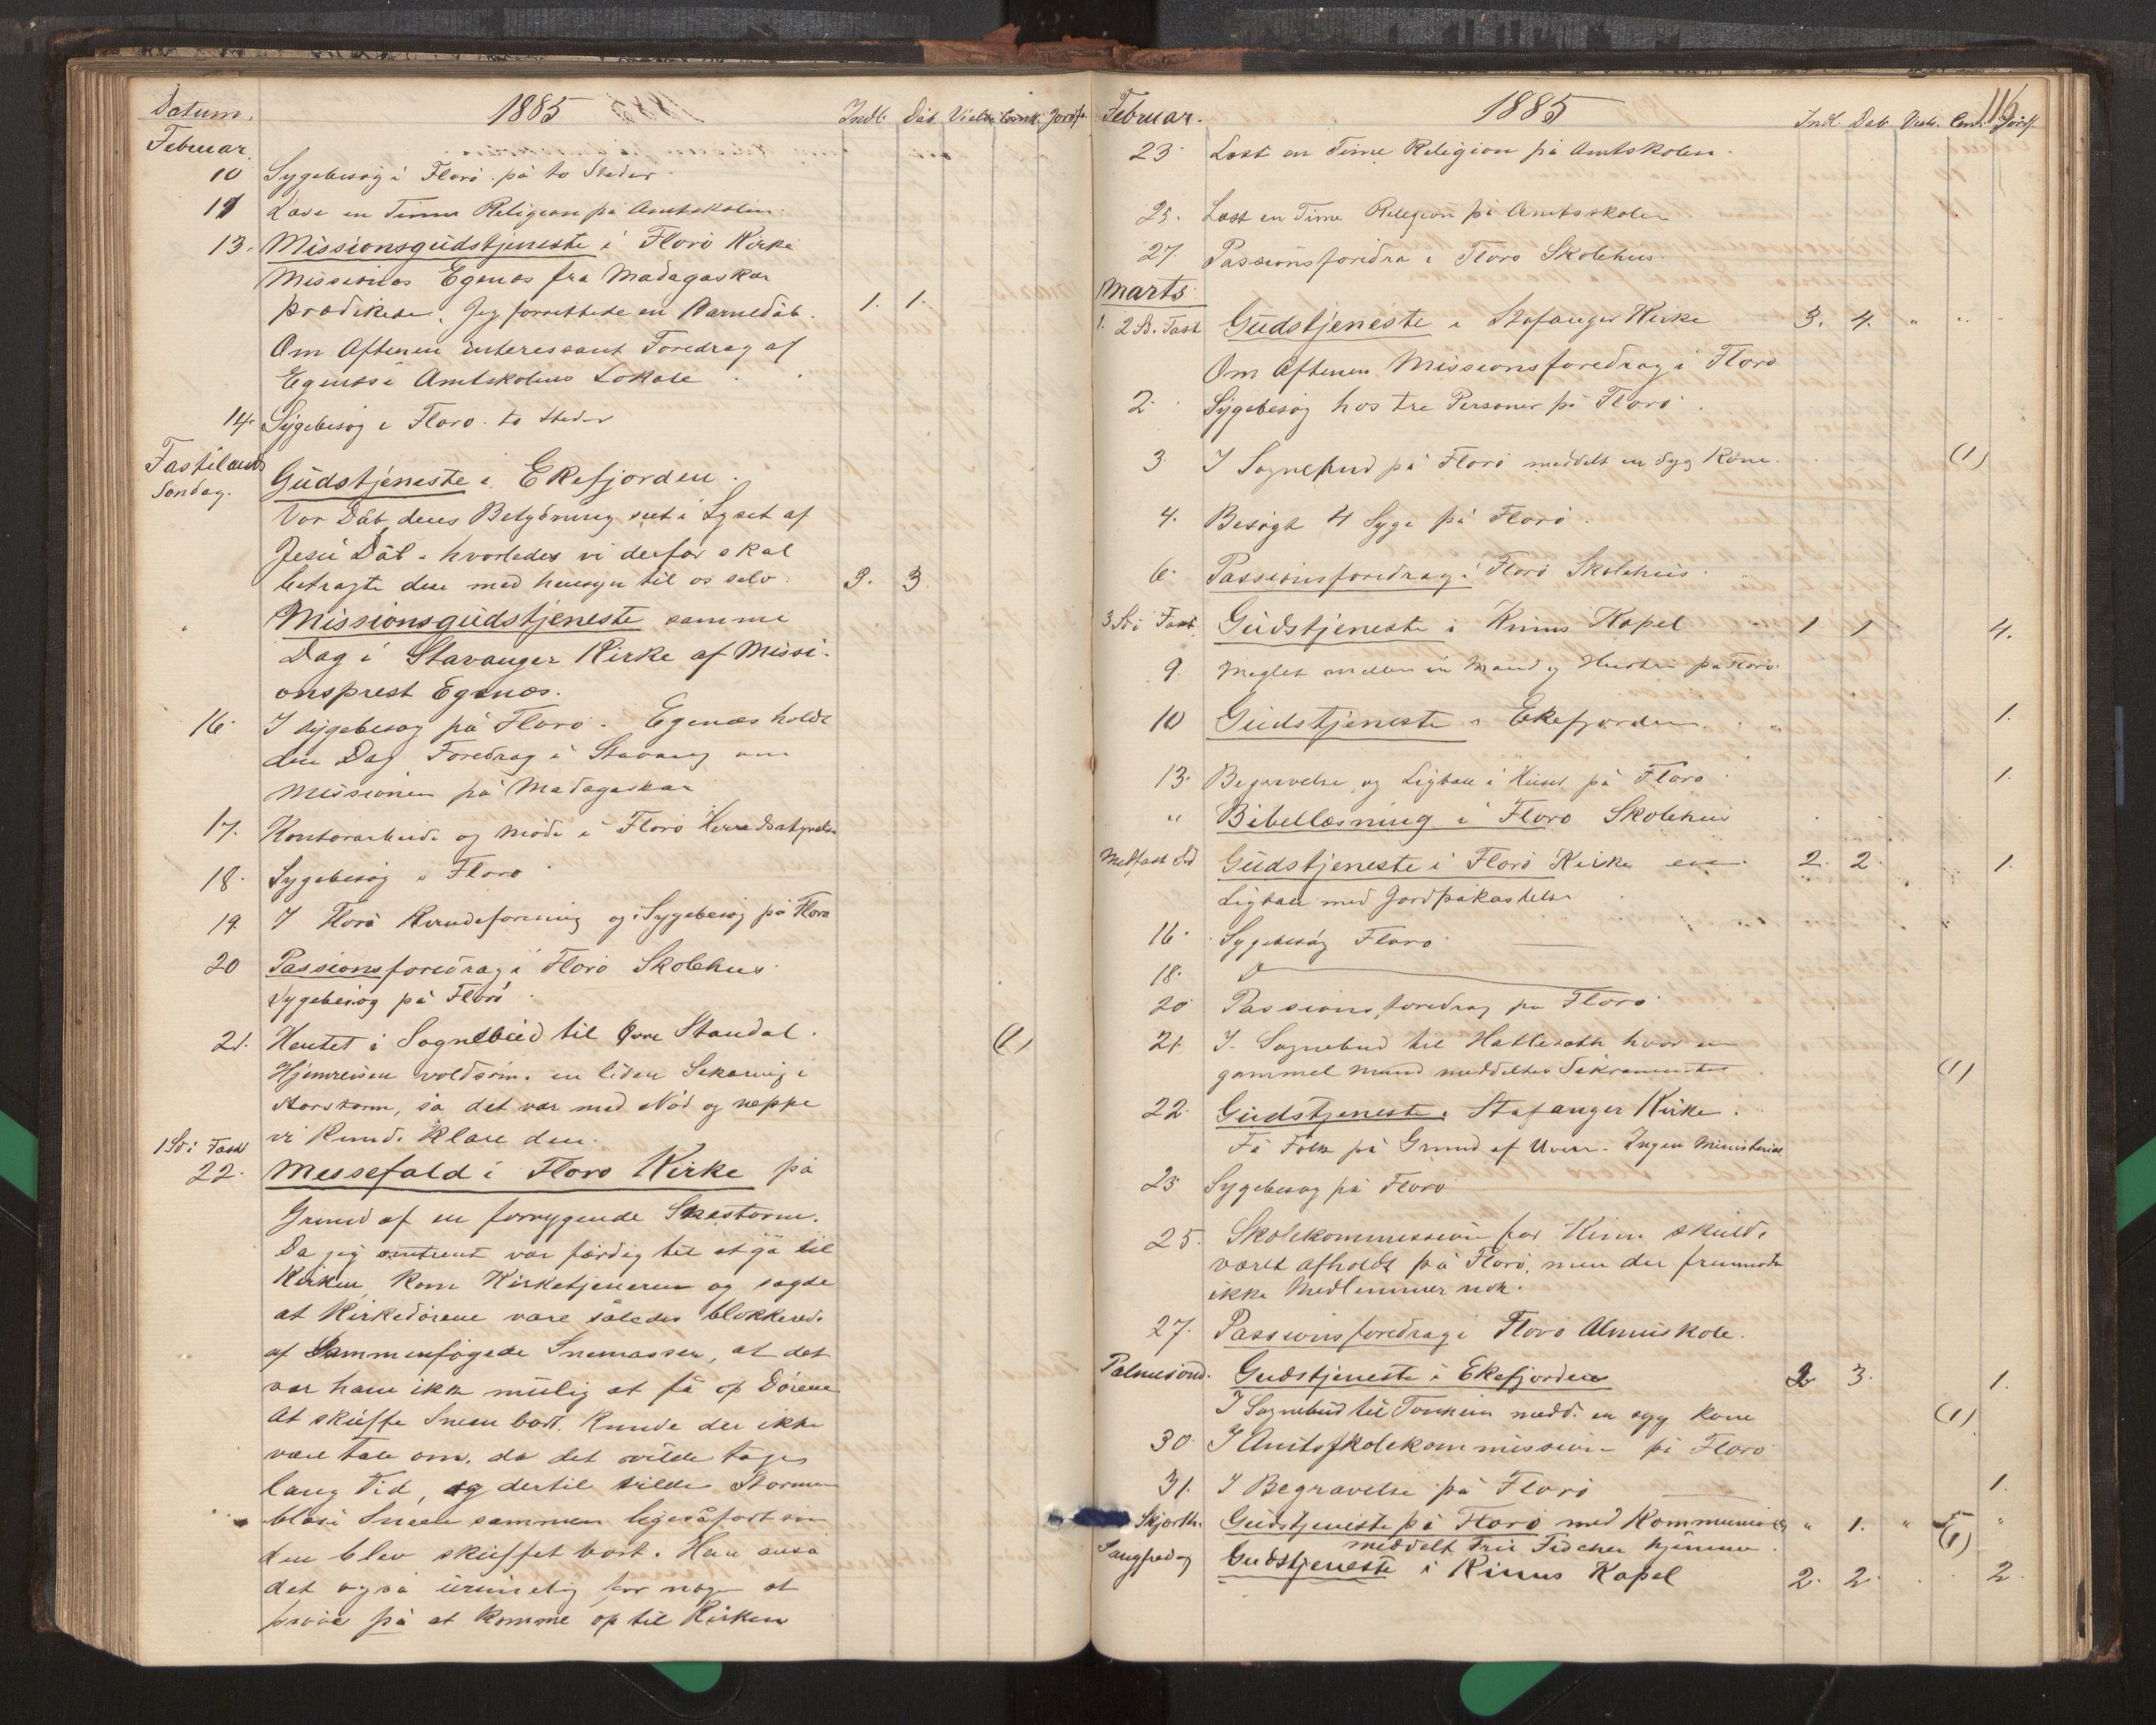 Datum. 1885 Indl. Dåb Viels. Comk. Jordf.
Februar.
10 Sygebesøg i Florø på to Steder
11 Læse en Time Religion på Amtskolen.
13. Missionsgudstjeneste i Florø Kirke
Missionær Egenæs fra Madagaskar
prædikede. Jeg forrettede en Barnedåb. 1. 1.
Om Aftenen interessant Foredrag af
Egenæs i Amtskolens Lokale
14. Sygebesøg i Florø. to Steder
Fastelavns Gudstjeneste i Ekefjorden.
Søndag.
Vor Dåb, dens Betydning seet i Lyset af
Jesu Dåb - hvorledes vi derfor skal
betragte den med hensyn til os selv. 3. 3.
Missionsgudstjeneste samme
Dag i Stavanger Kirke af Missi-
onsprest Egenæs.
16. I sygebesøg på Florø. Egenæs holdt
den Dag Foredrag i Stavang om
Missionen på Madagaskar
17. Kontorarbeide og Møde i Florø Herredsstyrelse
18. Sygebesøg i Florø
19. I Florø Kvindeforening og i Sygebesøg på Florø
20 Passionsforedrag i Florø Skolehus.
Sygebesøg på Florø.
21. Hentet i Sognebud til Øvre Standal. (1)
Hjemreisen voldsom. en liden i
Storstorm, så det var med Nød og neppe
vi kunde klare den.
1 Sø i Fast
22. Messefald i Florø Kirke på
Grund af en forrygende Snestorm.
Da jeg omtrent var færdig til at gå til
Kirken, kom Kirketjeneren og sagde
at Kirkedørene vare således blokkerede
af Sammenføgede Snemasser, at det
var ham ikke mulig at få op Dørene
At skuffe Sneen bort kunde der ikke
være Tale om, da det vilde tage
lang Tid, og dertil vilde Stormen
blæse Sneen sammen ligeså fort som
den blev skuffet bort. Han anså
det også urimelig for nogen at
prøve på at komme op til Kirken
116
Februar. 1885 Indl. Dåb Viels. Com. Jordf.
23 Læst en Time Religion på Amtskolen.
25. Læst en Time Religion på Amtsskolen
27. Passionsforedra i Florø Skolehus.
Marts
1. 2 S. Fast Gudstjeneste i Stafanger Kirke 3. 4. " "
Om Aftenen Missionsforedrag i Florø
2. Sygebesøg hos tre Personer på Florø.
3. I Sognebud på Florø meddelt en syg Kone. (1)
4. Besøgt 4 Syge på Florø.
6. Passionsforedrag i Florø Skolehus.
3 Sø i Fast Gudstjeneste i Kinns Kapel 1 1 4.
9. Meglet mellem en Mand og Hustru på Florø.
10 Gudstjeneste i Ekefjorden. 1.
13. Begravelse og Ligtale i Huset på Florø. 1.
" Bibellæsning i Florø Skolehus
Midfast Sd Gudstjeneste i Florø Kirke en 2. 2. 1.
Ligtale med Jordpåkastelse
16. Sygebesøg Florø
18. D
20 Passionsforedrag på Florø
21. I Sognebud til hvor en
gammel Mand meddeltes Sakramentet (1)
22. Gudstjeneste i Stafanger Kirke.
Få Folk på Grund af Uveir. Ingen Ministerial
23 Sygebesøg på Florø
25. Skolekommission for Kinn skulde
været afholdt på Florø, men der fremmødte
ikke Medlemmer nok.
27. Passionsforedrag i Florø Almuskole.
Palmesønd. Gudstjeneste i Ekefjorden 2 3. 1.
I Sognebud til medd. en syg kone (1)
30. I Amtsskolekommission på Florø
31. I Begravelse på Florø 1.
Skjærth. Gudstjeneste på Florø med Kommunion " 1. " "
meddelt Fru Fischer hjemme. (1)
Langfredag Gudstjeneste i Kinns Kapel 2. 2. 2.